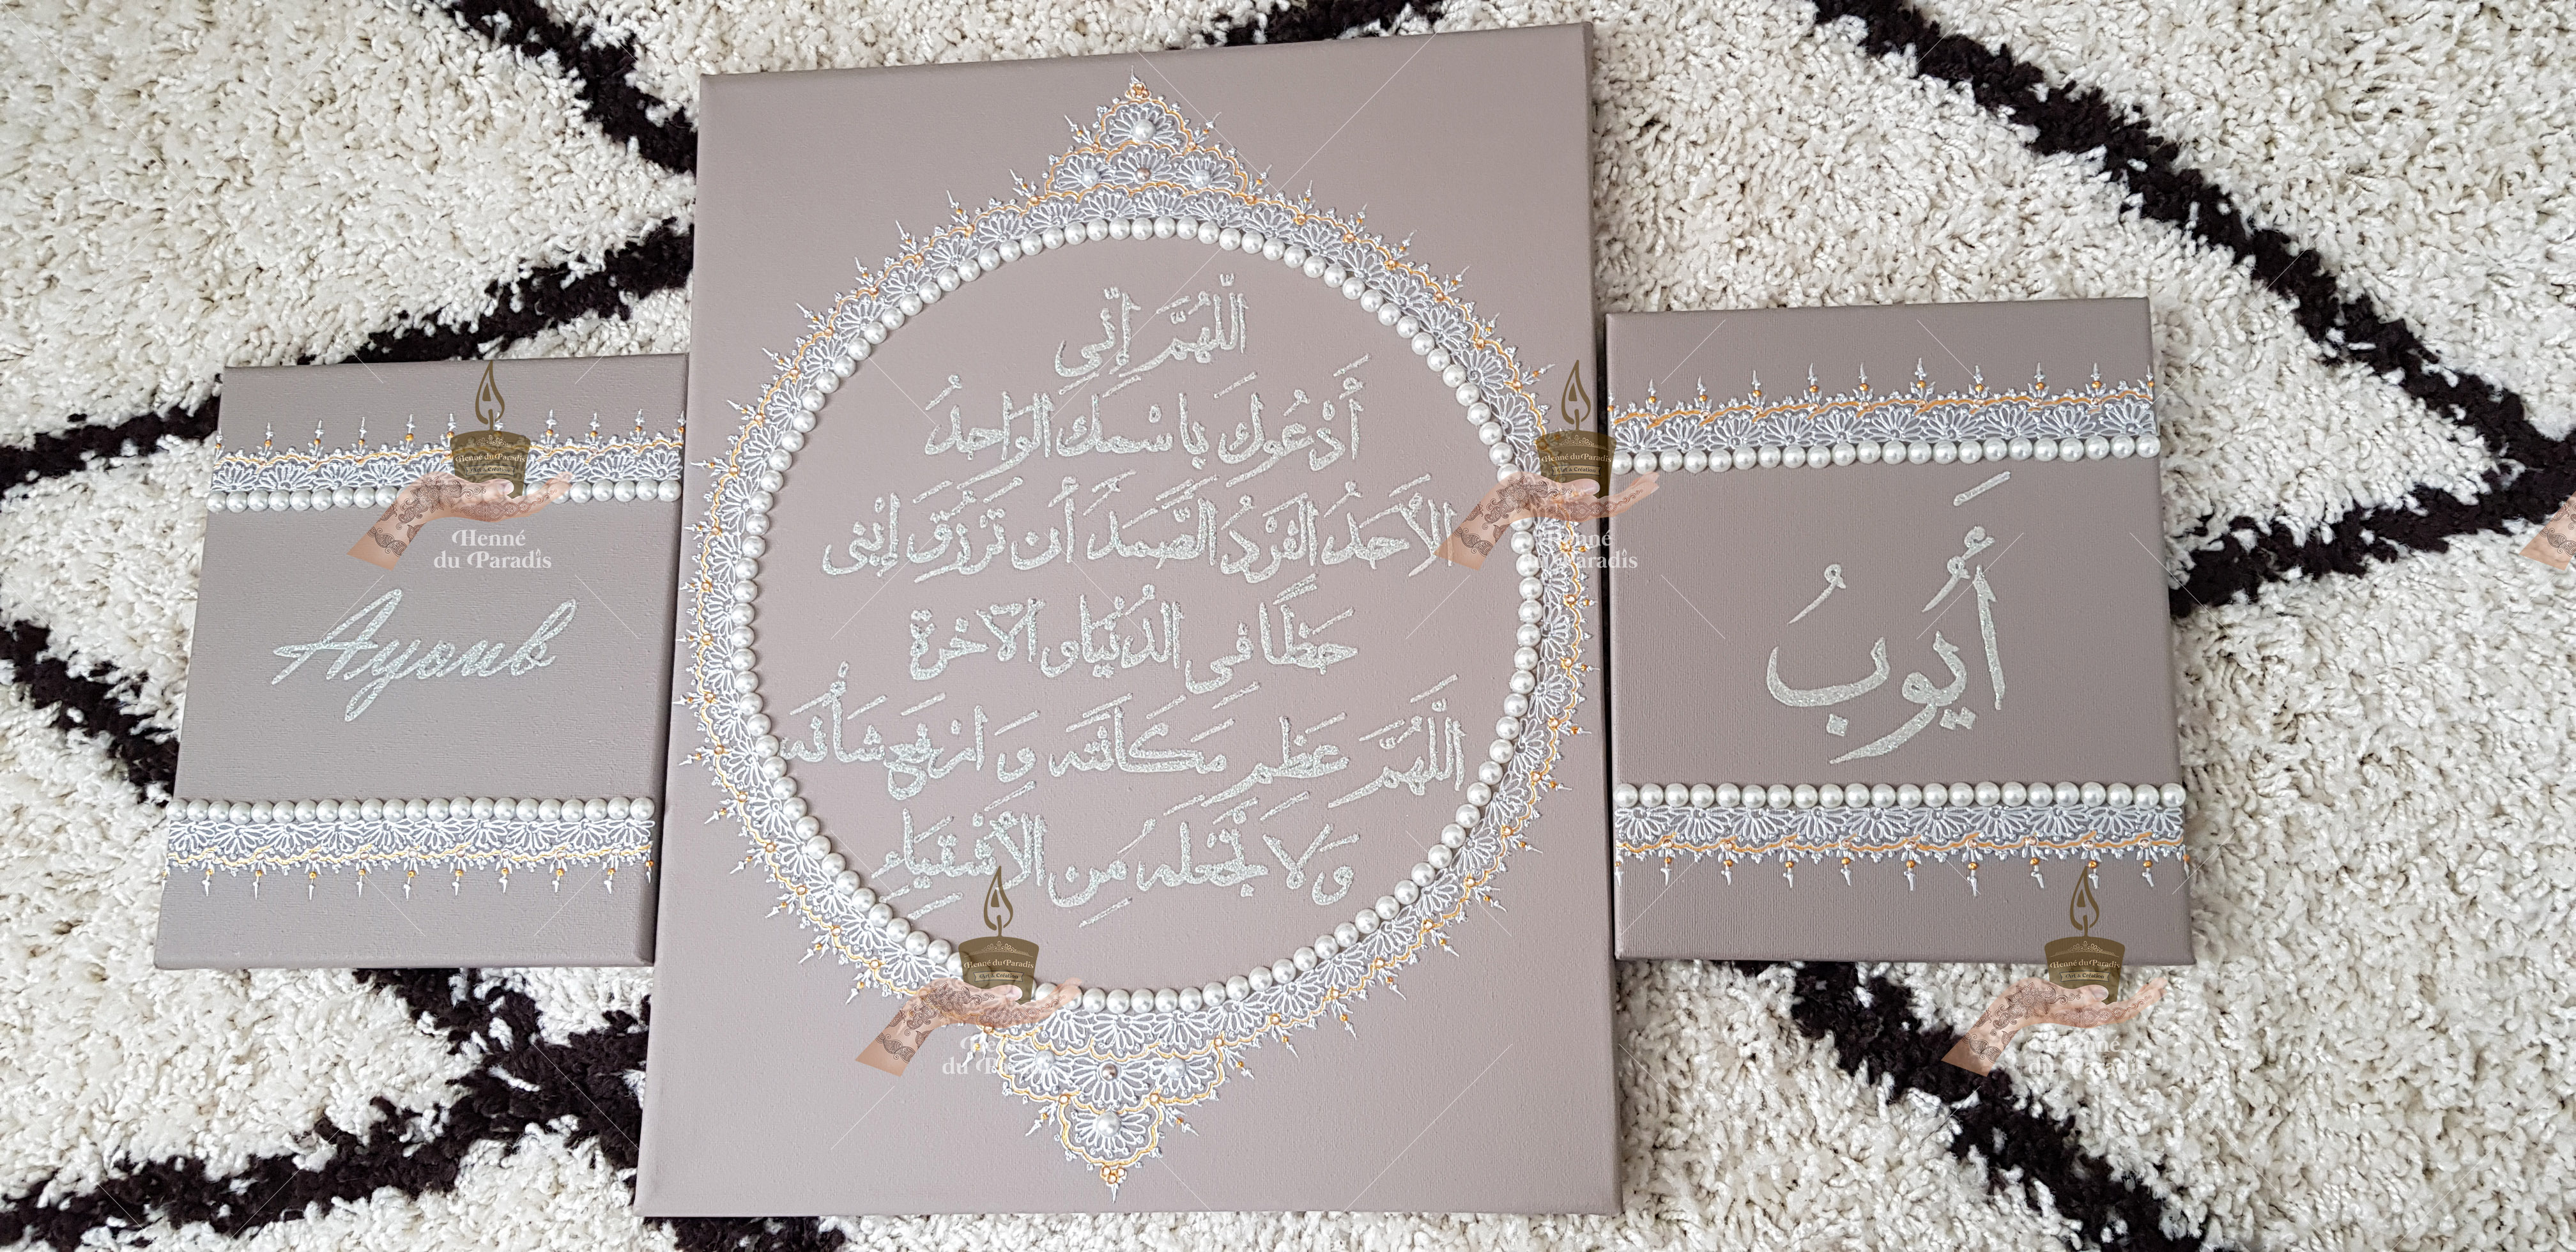 Ayoub
اللّٰهُمَّ إِنِّي
أَدْعُوكَ بِاسْمِكَ الوَاحِدُ
الأَحَدُ الفَرْدُ الصَّمَدُ أَن تَرْزُقَ إِبْنِي
حَظًا فِي الدُنْيَا وَ الآخِرَة
اللّٰهُمَّ عَظِم مَكَانَتَه وَ ارْفَع شَأْنَه
وَ لَا تَجْعَلهُ مِنَ الأَشْقِيَاءِ
أَيُّوبُ
Henné du Paradis
Art & Création
Henné
du Paradis
Henné du Paradis
Art & Création
Henné
du Paradis
Henné du Paradis
Art & Création
Henné
du Paradis
Henné du Paradis
Art & Création
Henné
du Paradis